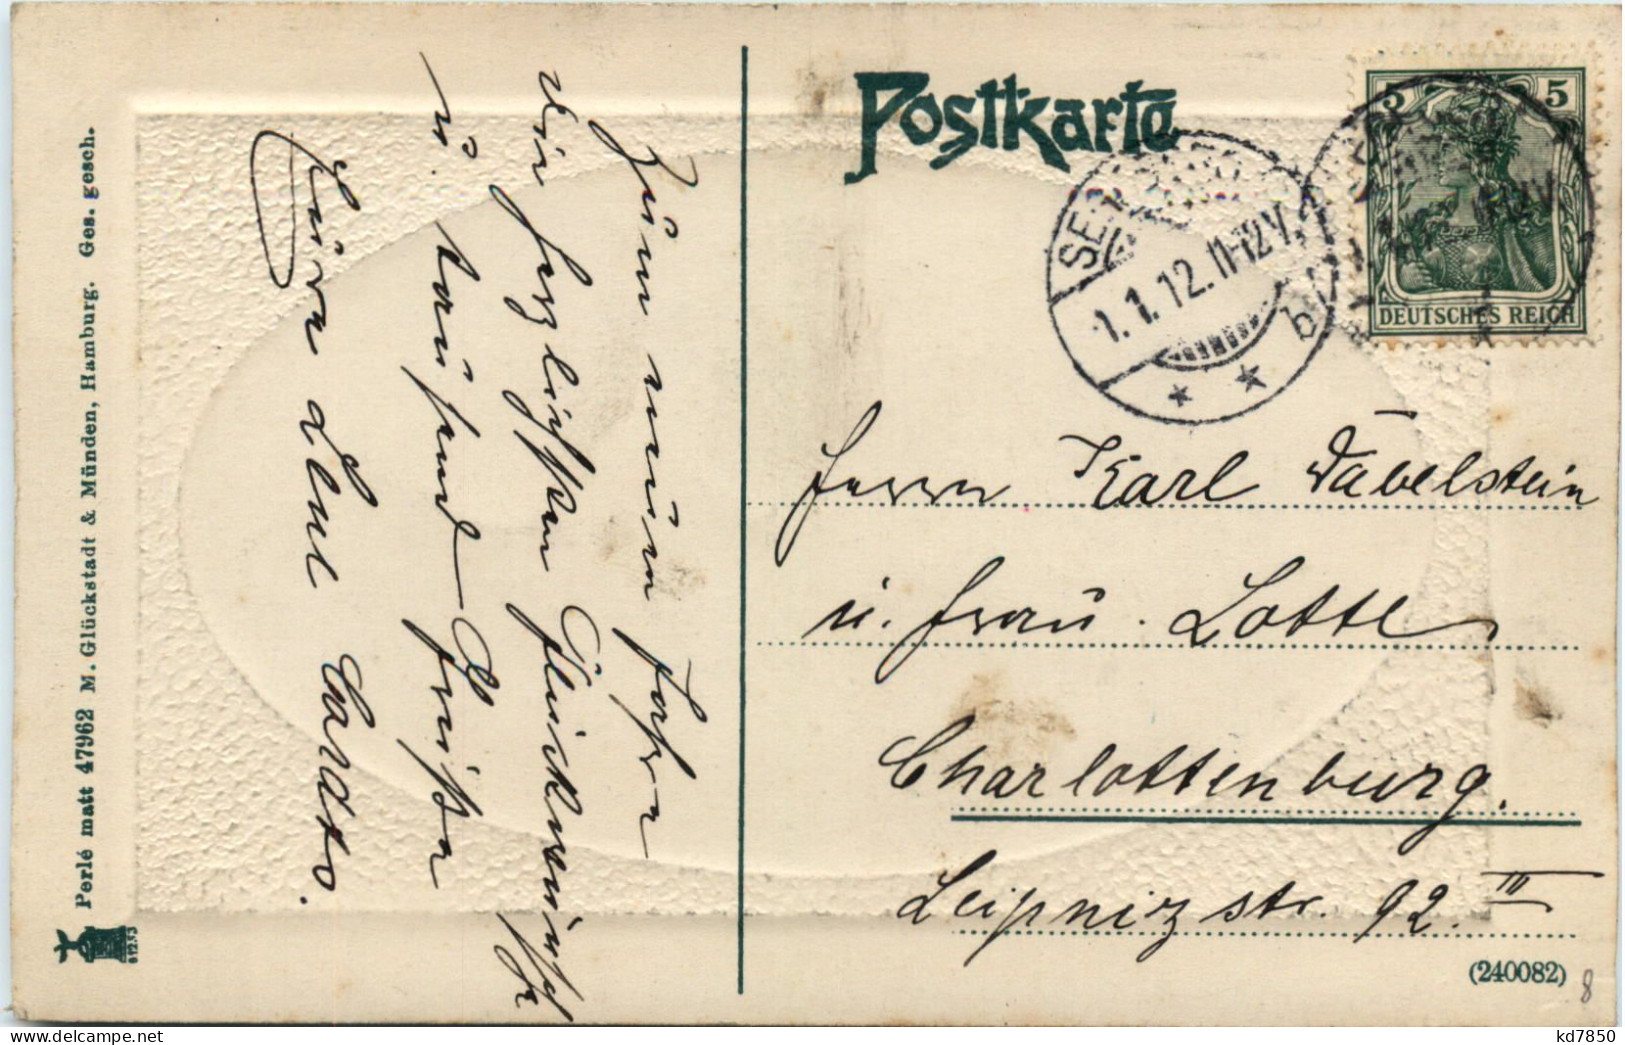 Postkarte
5 5
DEUTSCHES REICH
1.1.12.11-12V.
b
* *
Herrn Karl Dabelstein
u. Frau Lotte
Charlottenburg.
Leipnizstr. 92 III
(240082)
8
Zum neuen Jahre
die herzlichsten Glückwünsche
u. tausend Grüße
Eure Lene Cardts.
Perlé matt 47962 M. Glückstadt & Münden, Hamburg. Ges. gesch.
kd7850